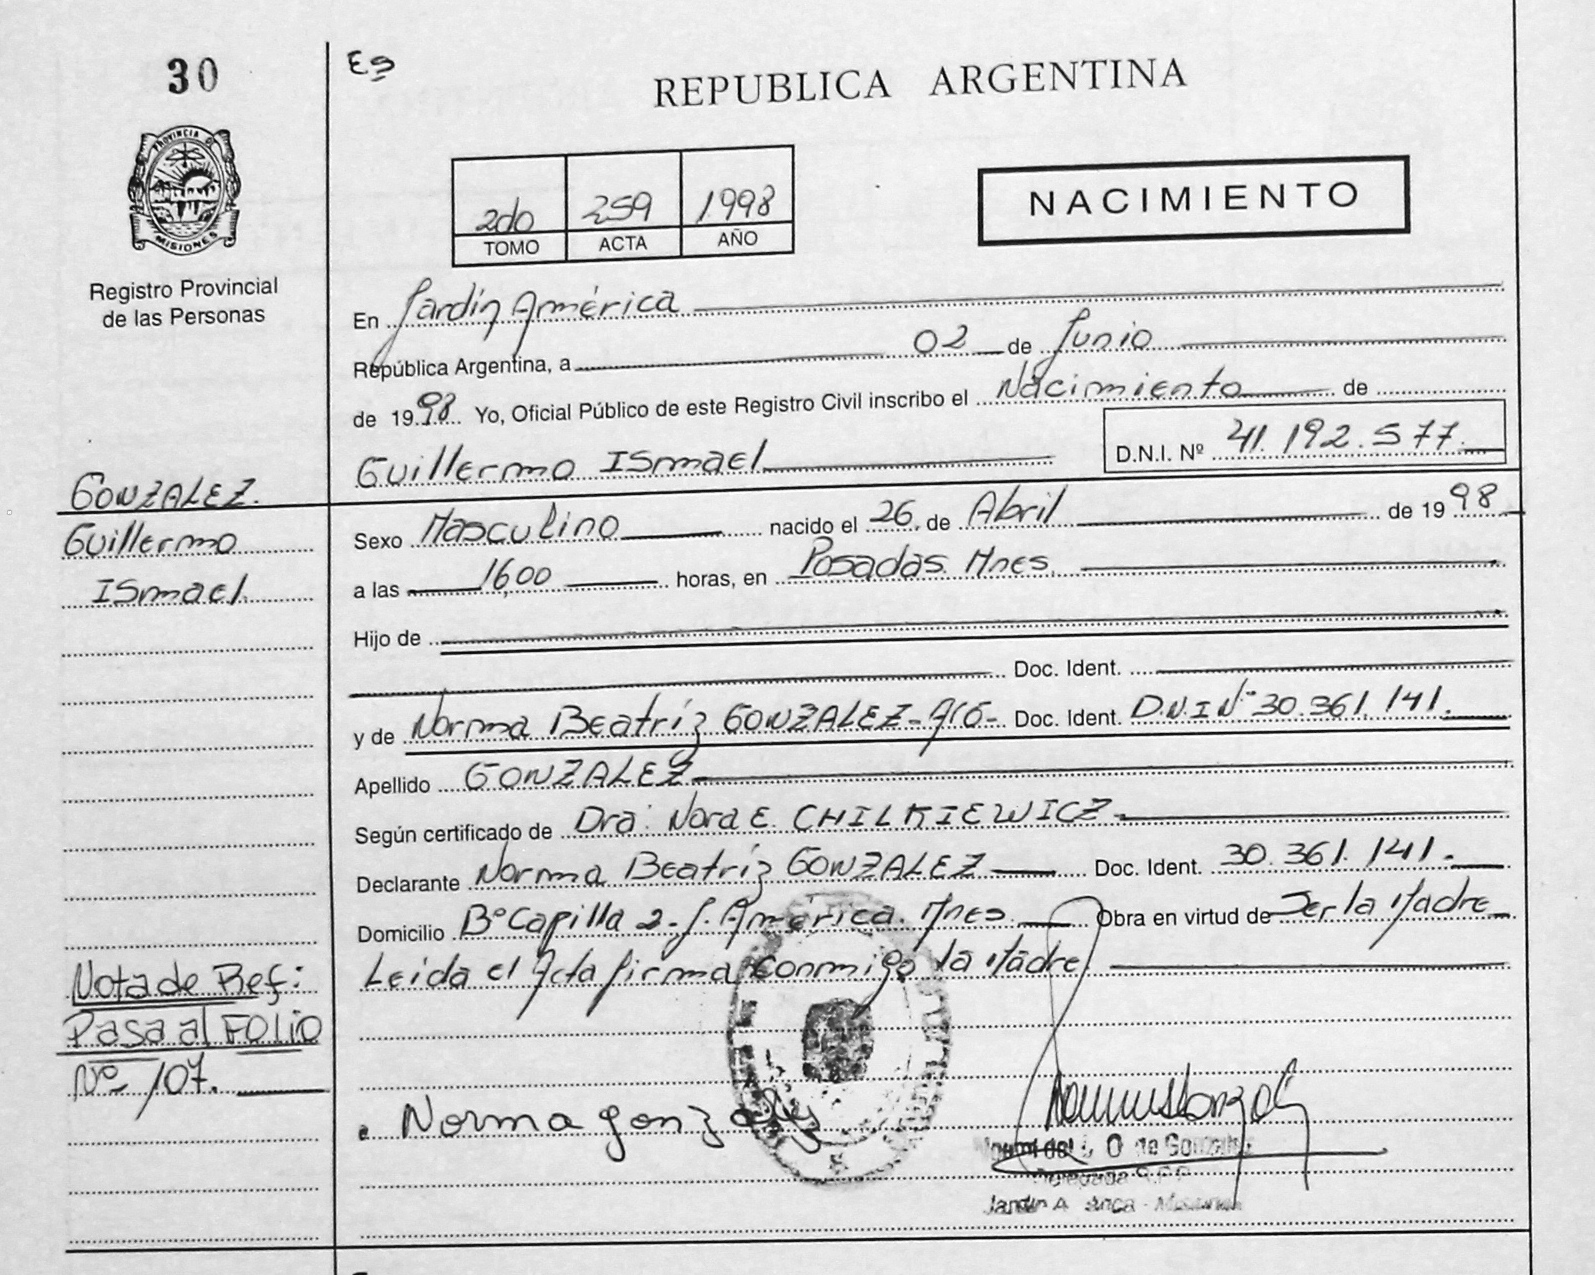 30
Es
REPUBLICA ARGENTINA
PROVINCIA DE
MISIONES
Registro Provincial
de las Personas
2do 259 1998
TOMO ACTA AÑO
NACIMIENTO
En Jardín América
República Argentina, a 02 de Junio
de 1998 Yo, Oficial Público de este Registro Civil inscribo el Nacimiento de
Guillermo ISmael D.N.I. Nº 41.192.577.
GONZALEZ.
Guillermo
ISmael.
Sexo Masculino nacido el 26 de Abril de 1998
a las 16,00 horas, en Posadas. Mnes.
Hijo de
Doc. Ident.
y de Norma Beatríz GONZALEZ- Doc. Ident. D.N.I Nº 30.361.141.
Apellido GONZALEZ
Según certificado de Dra: Nora E. CHILKIEWICZ
Declarante Norma Beatríz GONZALEZ Doc. Ident. 30.361.141.
Domicilio Bº Capilla 2-J. América. Mnes Obra en virtud de Ser la Madre
Leída el Acta firma conmigo la Madre
Nota de Ref:
Pasa al FOLIO
Nº 107.
Norma gonzalez
de Gonzalez
Delegada R.P.P.
Jardín América - Misiones